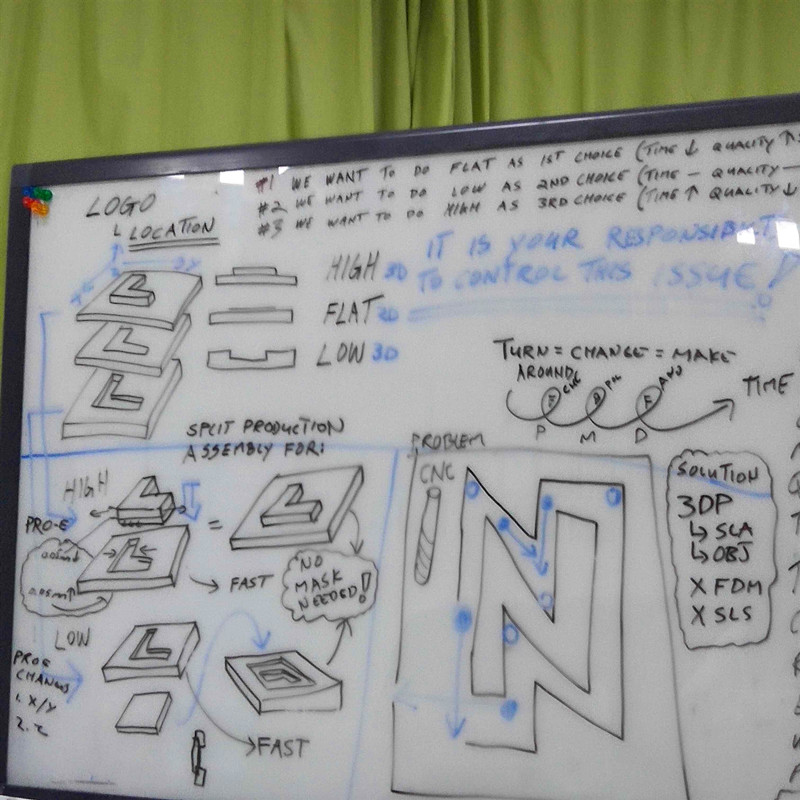 LOGO
LOCATION
#1 WE WANT TO DO FLAT AS 1ST CHOICE (TIME ↓ QUALITY ↑
#2 WE WANT TO DO LOW AS 2ND CHOICE (TIME — QUALITY —
#3 WE WANT TO DO HIGH AS 3RD CHOICE (TIME ↑ QUALITY ↓
IT IS YOUR RESPONSIBILIT
TO CONTROL THIS ISSUE!
HIGH 3D
FLAT 2D
LOW 3D
TURN = CHANGE = MAKE
AROUND
TIME
P M D
SPLIT PRODUCTION
ASSEMBLY FOR:
HIGH
PRO-E
0.05m↑
=
FAST
NO
MASK
NEEDED!
LOW
PROE
CHANGES
1. X/Y
2. Z
FAST
PROBLEM
CNC
SOLUTION
3DP
↳ SLA
↳ OBJ
X FDM
X SLS